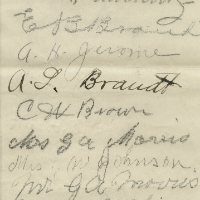 E E Braud
A. H. Jerome
A. P. Brandt
C H Brown
Mrs G A Morris
Mrs W Johnson,
G A Morris